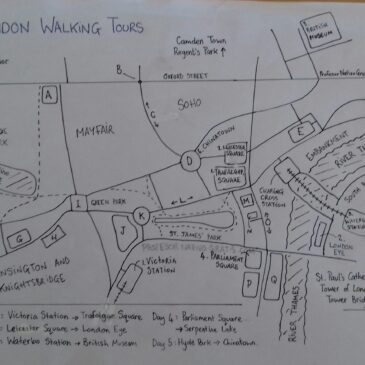 NDON WALKING TOURS
Camden Town
Regent's Park ↑
3. BRITISH
MUSEUM
B
OXFORD STREET
A
SOHO
C
MAYFAIR
CHINATOWN
D
2. LEICESTER
SQUARE
1. TRAFALGAR
SQUARE
E
EMBANKMENT
RIVER TH
SOUTH
I
GREEN PARK
L
K
J
ST. JAMES' PARK
M
CHARING
CROSS
STATION
WATERLOO
STATION
2.
LONDON
EYE
G
H
1. VICTORIA
STATION
4. PARLIAMENT
SQUARE
P
Q
RIVER THAMES
NSINGTON AND
KNIGHTSBRIDGE
St. Paul's Cathe
Tower of Lon
Tower Brid
: Victoria Station → Trafalgar Square
: Leicester Square → London Eye
: Waterloo Station → British Museum
Day 4: Parliament Square...
→ Serpentine Lake
Day 5: Hyde Park → Chinatown.